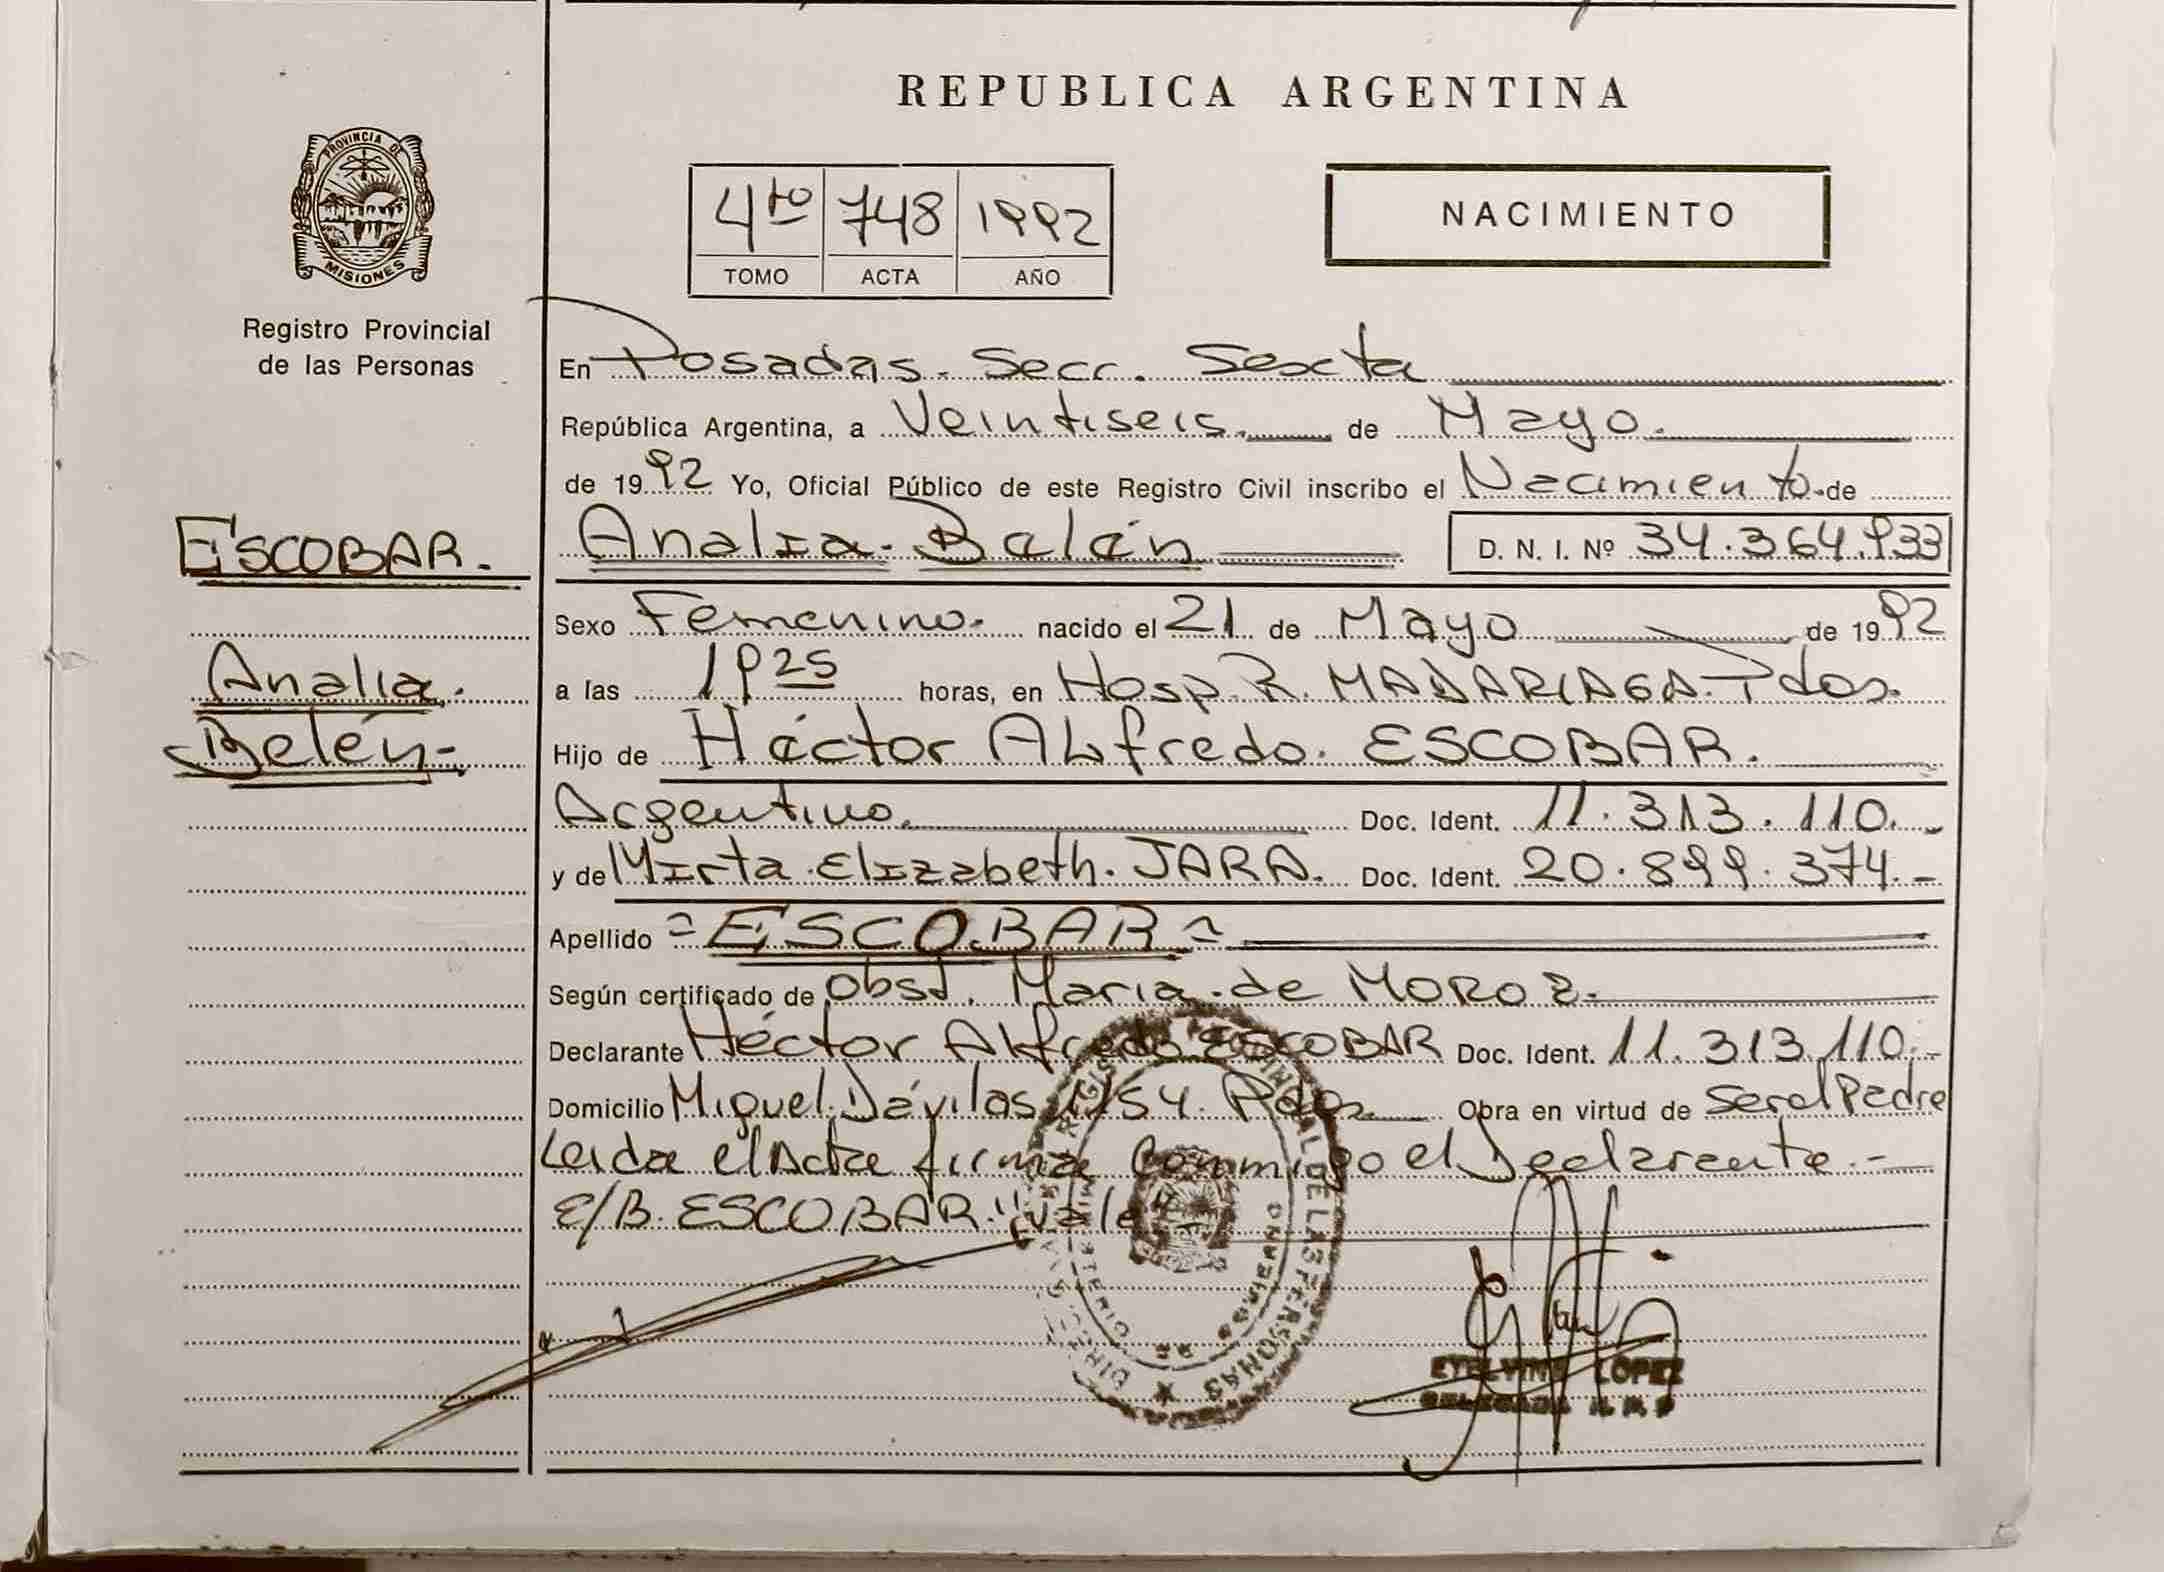 REPUBLICA ARGENTINA
PROVINCIA DE MISIONES
Registro Provincial
de las Personas
4to 748 1992
TOMO ACTA AÑO
NACIMIENTO
En Posadas. Secc. Sexta
República Argentina, a Veintiseis. de Mayo.
de 1992 Yo, Oficial Público de este Registro Civil inscribo el Nacimiento de
ESCOBAR.
Analia. Belén D. N. I. Nº 34.364.933
Sexo Femenino. nacido el 21 de Mayo de 1992
Analia.
a las 1925 horas, en Hosp. R. MADARIAGA. Pdas.
Belén-
Hijo de Héctor Alfredo. ESCOBAR.
Argentino. Doc. Ident. 11.313.110.-
y de Mirta Elizabeth. JARA. Doc. Ident. 20.899.374.-
Apellido = ESCOBAR =
Según certificado de obst. Maria de MOROZ.
Declarante Héctor Alfredo ESCOBAR Doc. Ident. 11.313.110.-
Domicilio Miguel Dávilas 54. Pdas. Obra en virtud de ser el Padre
Leida el Acta firma Conmigo el Declarante.-
E/B. ESCOBAR. "vale"
EVELYNE LÓPEZ
DELEGADA